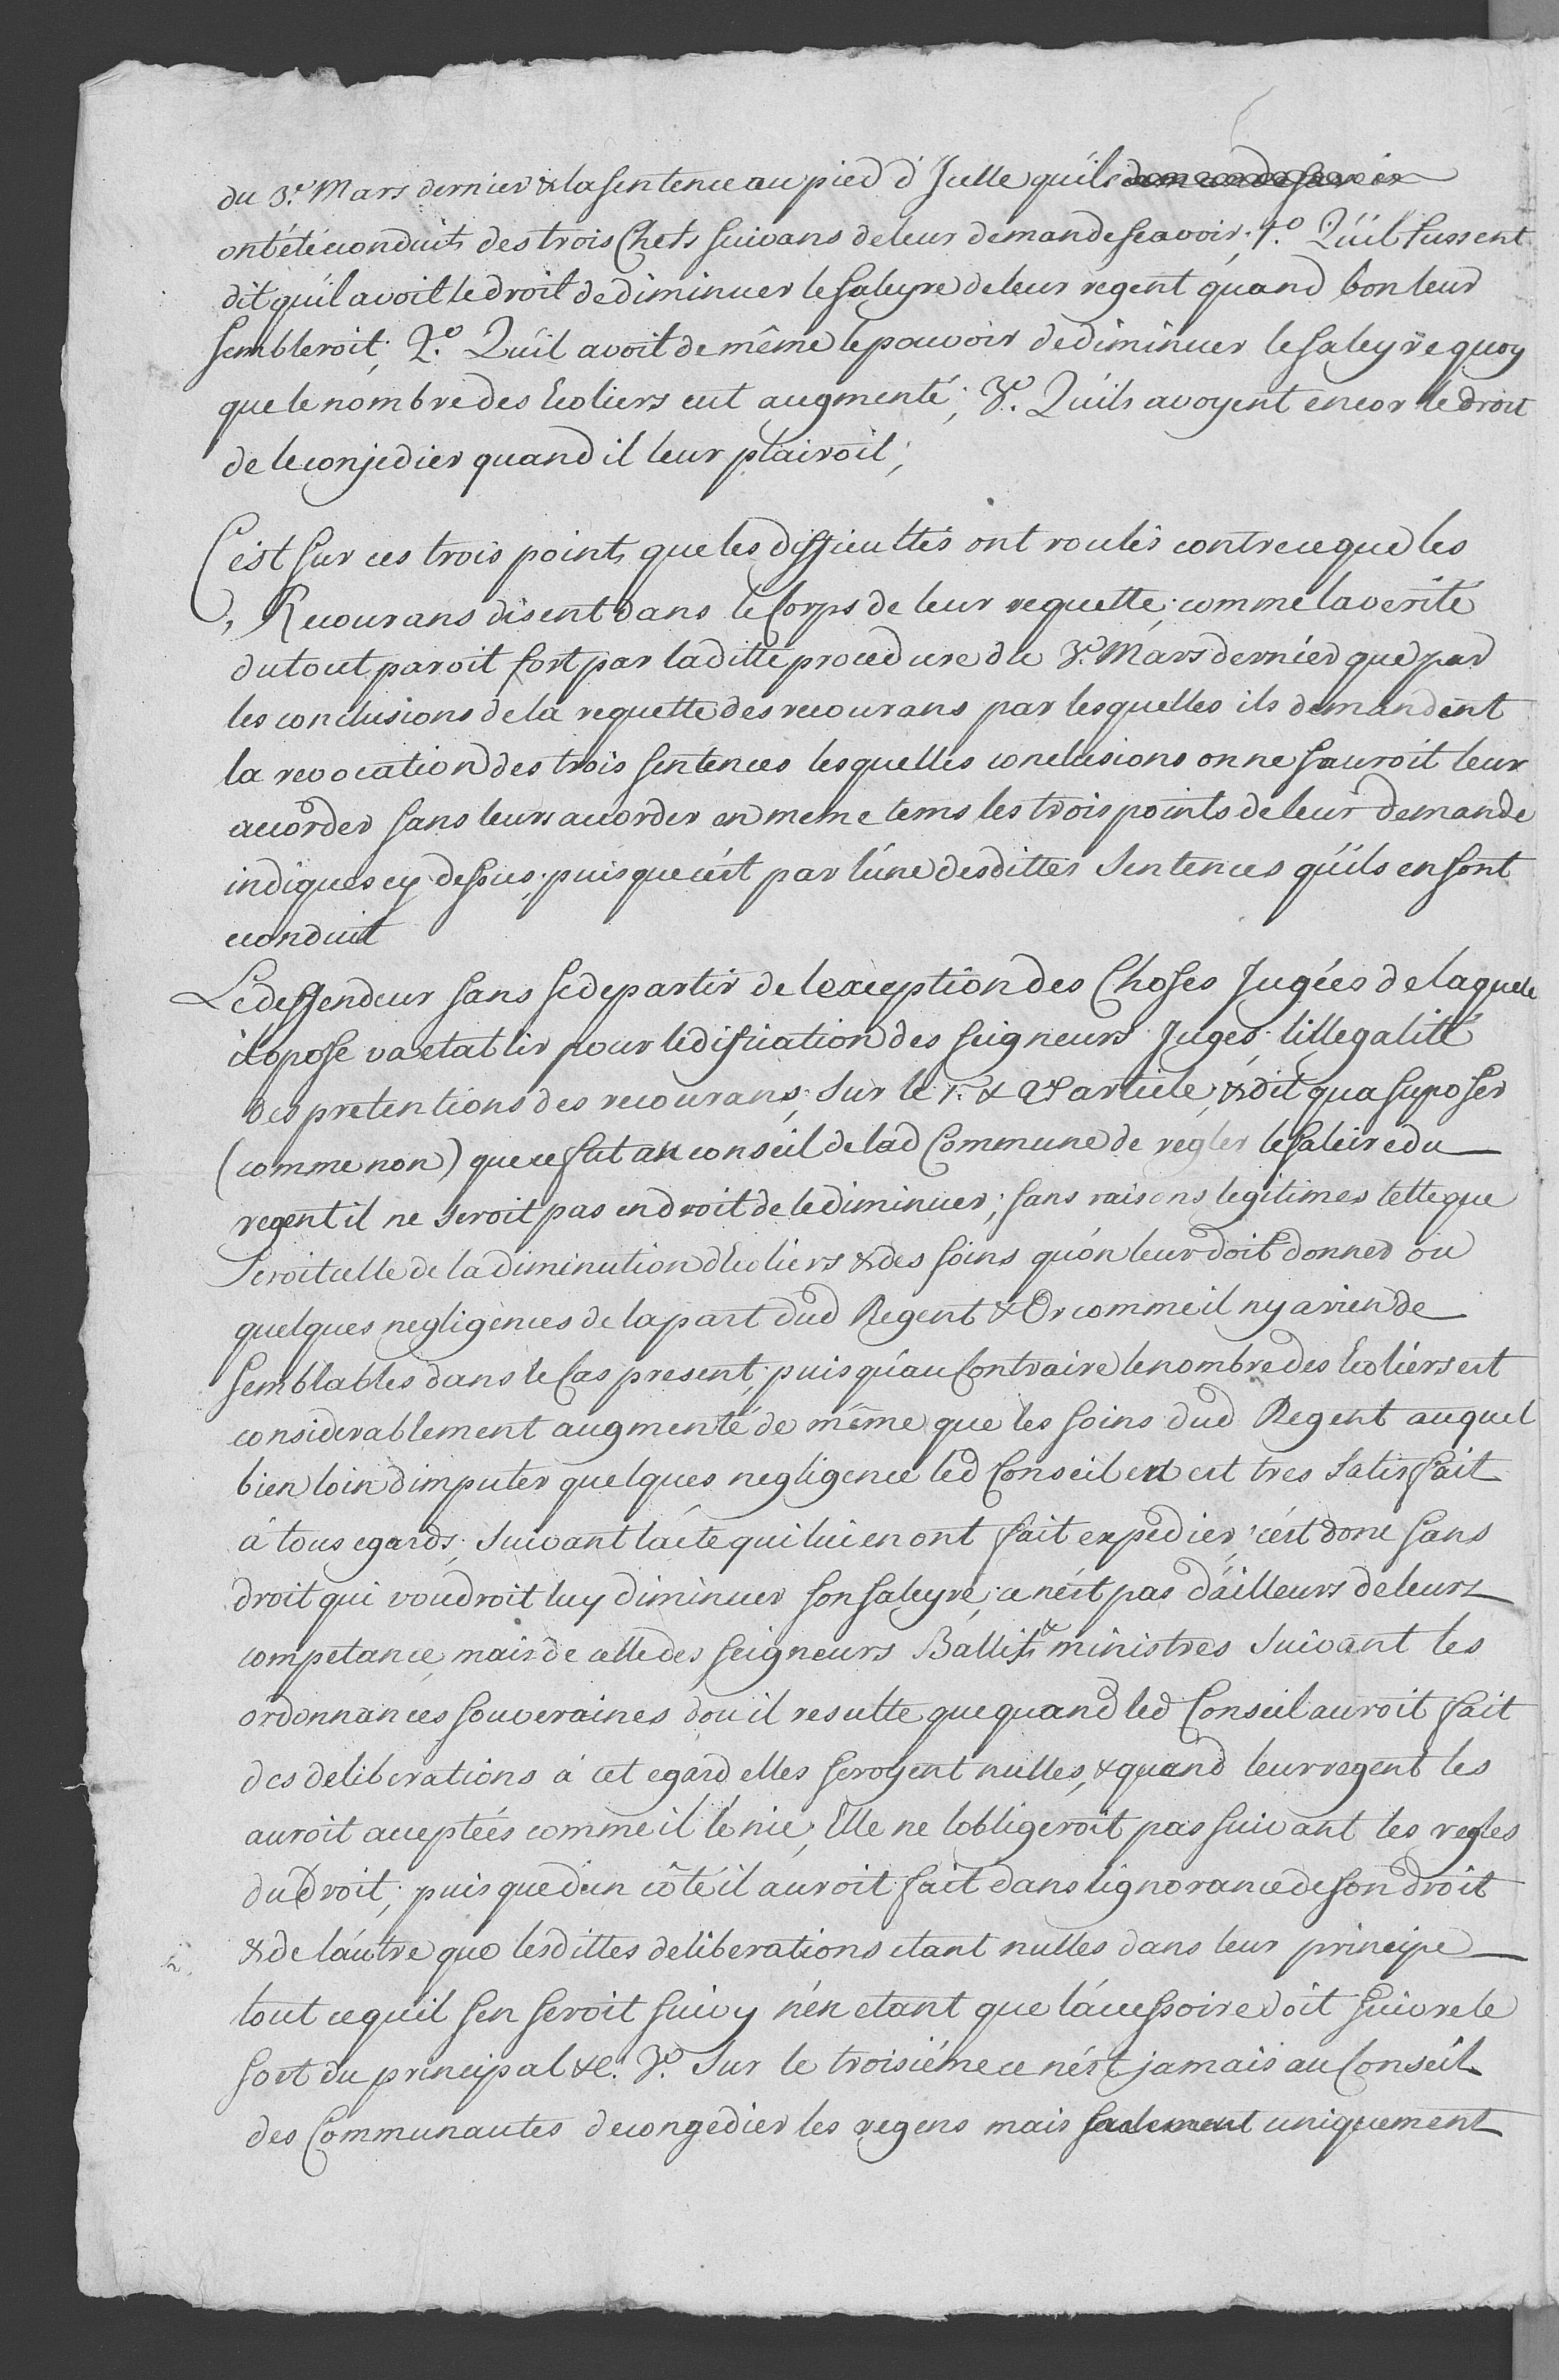 du 3.e Mars dernier & la sentence au pied d'Jcelle qu'ils
ont été éconduits des trois Chefs suivans de leur demande scavoir; 1.o Qu'il fussent
dit qu'il avoit le droit de diminuer le saleyre de leur regent quand bon leur
sembleroit; 2.o Qu'il avoit de même le pouvoir de diminuer le saleyre quoy
que le nombre des Ecoliers eut augmenté; 3.o Qu'ils avoyent encor le droit
de le conjedier quand il leur plairoit;
C'est sur ces trois points que les difficultés ont roulés contre ce que les
Recourans disent dans le Corps de leur requette; comme la verité
du tout paroit sort par laditte procedure du 3.e Mars dernier que par
les conclusions de la requette des recourans par lesquelles ils demandent
la revocation des trois sentences lesquelles conclusions on ne sauroit leur
accorder sans leurs accorder en meme tems les trois points de leur demande
indiqués cy dessus; puisque c'est par l'une desdittes Sentences qu'ils en sont
econduit
Le deffendeur sans se departir de l'exception des Choses Jugées de laquele
il opose va etablir pour ledification des seigneurs Juges lillegalité
des pretentions des recourans; Sur le 1.r & 2.d article, & dit qua suposer
(comme non) que ce fut au conseil de lad Commune de regler le saleire du
regent il ne seroit pas en droit de le diminuer; sans raisons legitimes telle que
seroit celle de la diminution d'Ecoliers & des soins qu'on leur doit donner ou
quelques negligences de la part dud Regent & Or comme il ny a rien de
semblables dans le Cas present; puis qu'au Contraire le nombre des Ecoliers est
considerablement augmenté de même que les soins dud Regent auquel
bien loin dimputer quelques negligence led Conseil en est tres Satisfait
à tous egards; Suivant l'acte qui lui en ont fait expedier; c'est donc sans
droit qui voudroit luy diminuer son saleyre; ce n'est pas d'ailleurs de leurs
competance mais de celle des seigneurs Ballifs & ministres Suivant les
ordonnances souveraines dou il resulte que quand led Conseil auroit fait
des deliberations à cet egard elles seroyent nulles, & quand leur regent les
auroit aceptées comme il le nie; Elle ne lobligeroit pas suivant les regles
du droit; puis que dun côté il auroit fait dans lignorance de son droit
& de l'autre que lesdittes deliberations etant nulles dans leur principe
tout ce quil sen seroit suivy n'en etant que l'accessoire doit suivre le
sort du principal &c. 3.o Sur le troisiéme ce n'est jamais au Conseil
des Communautes de congedier les regens mais seulement uniquement